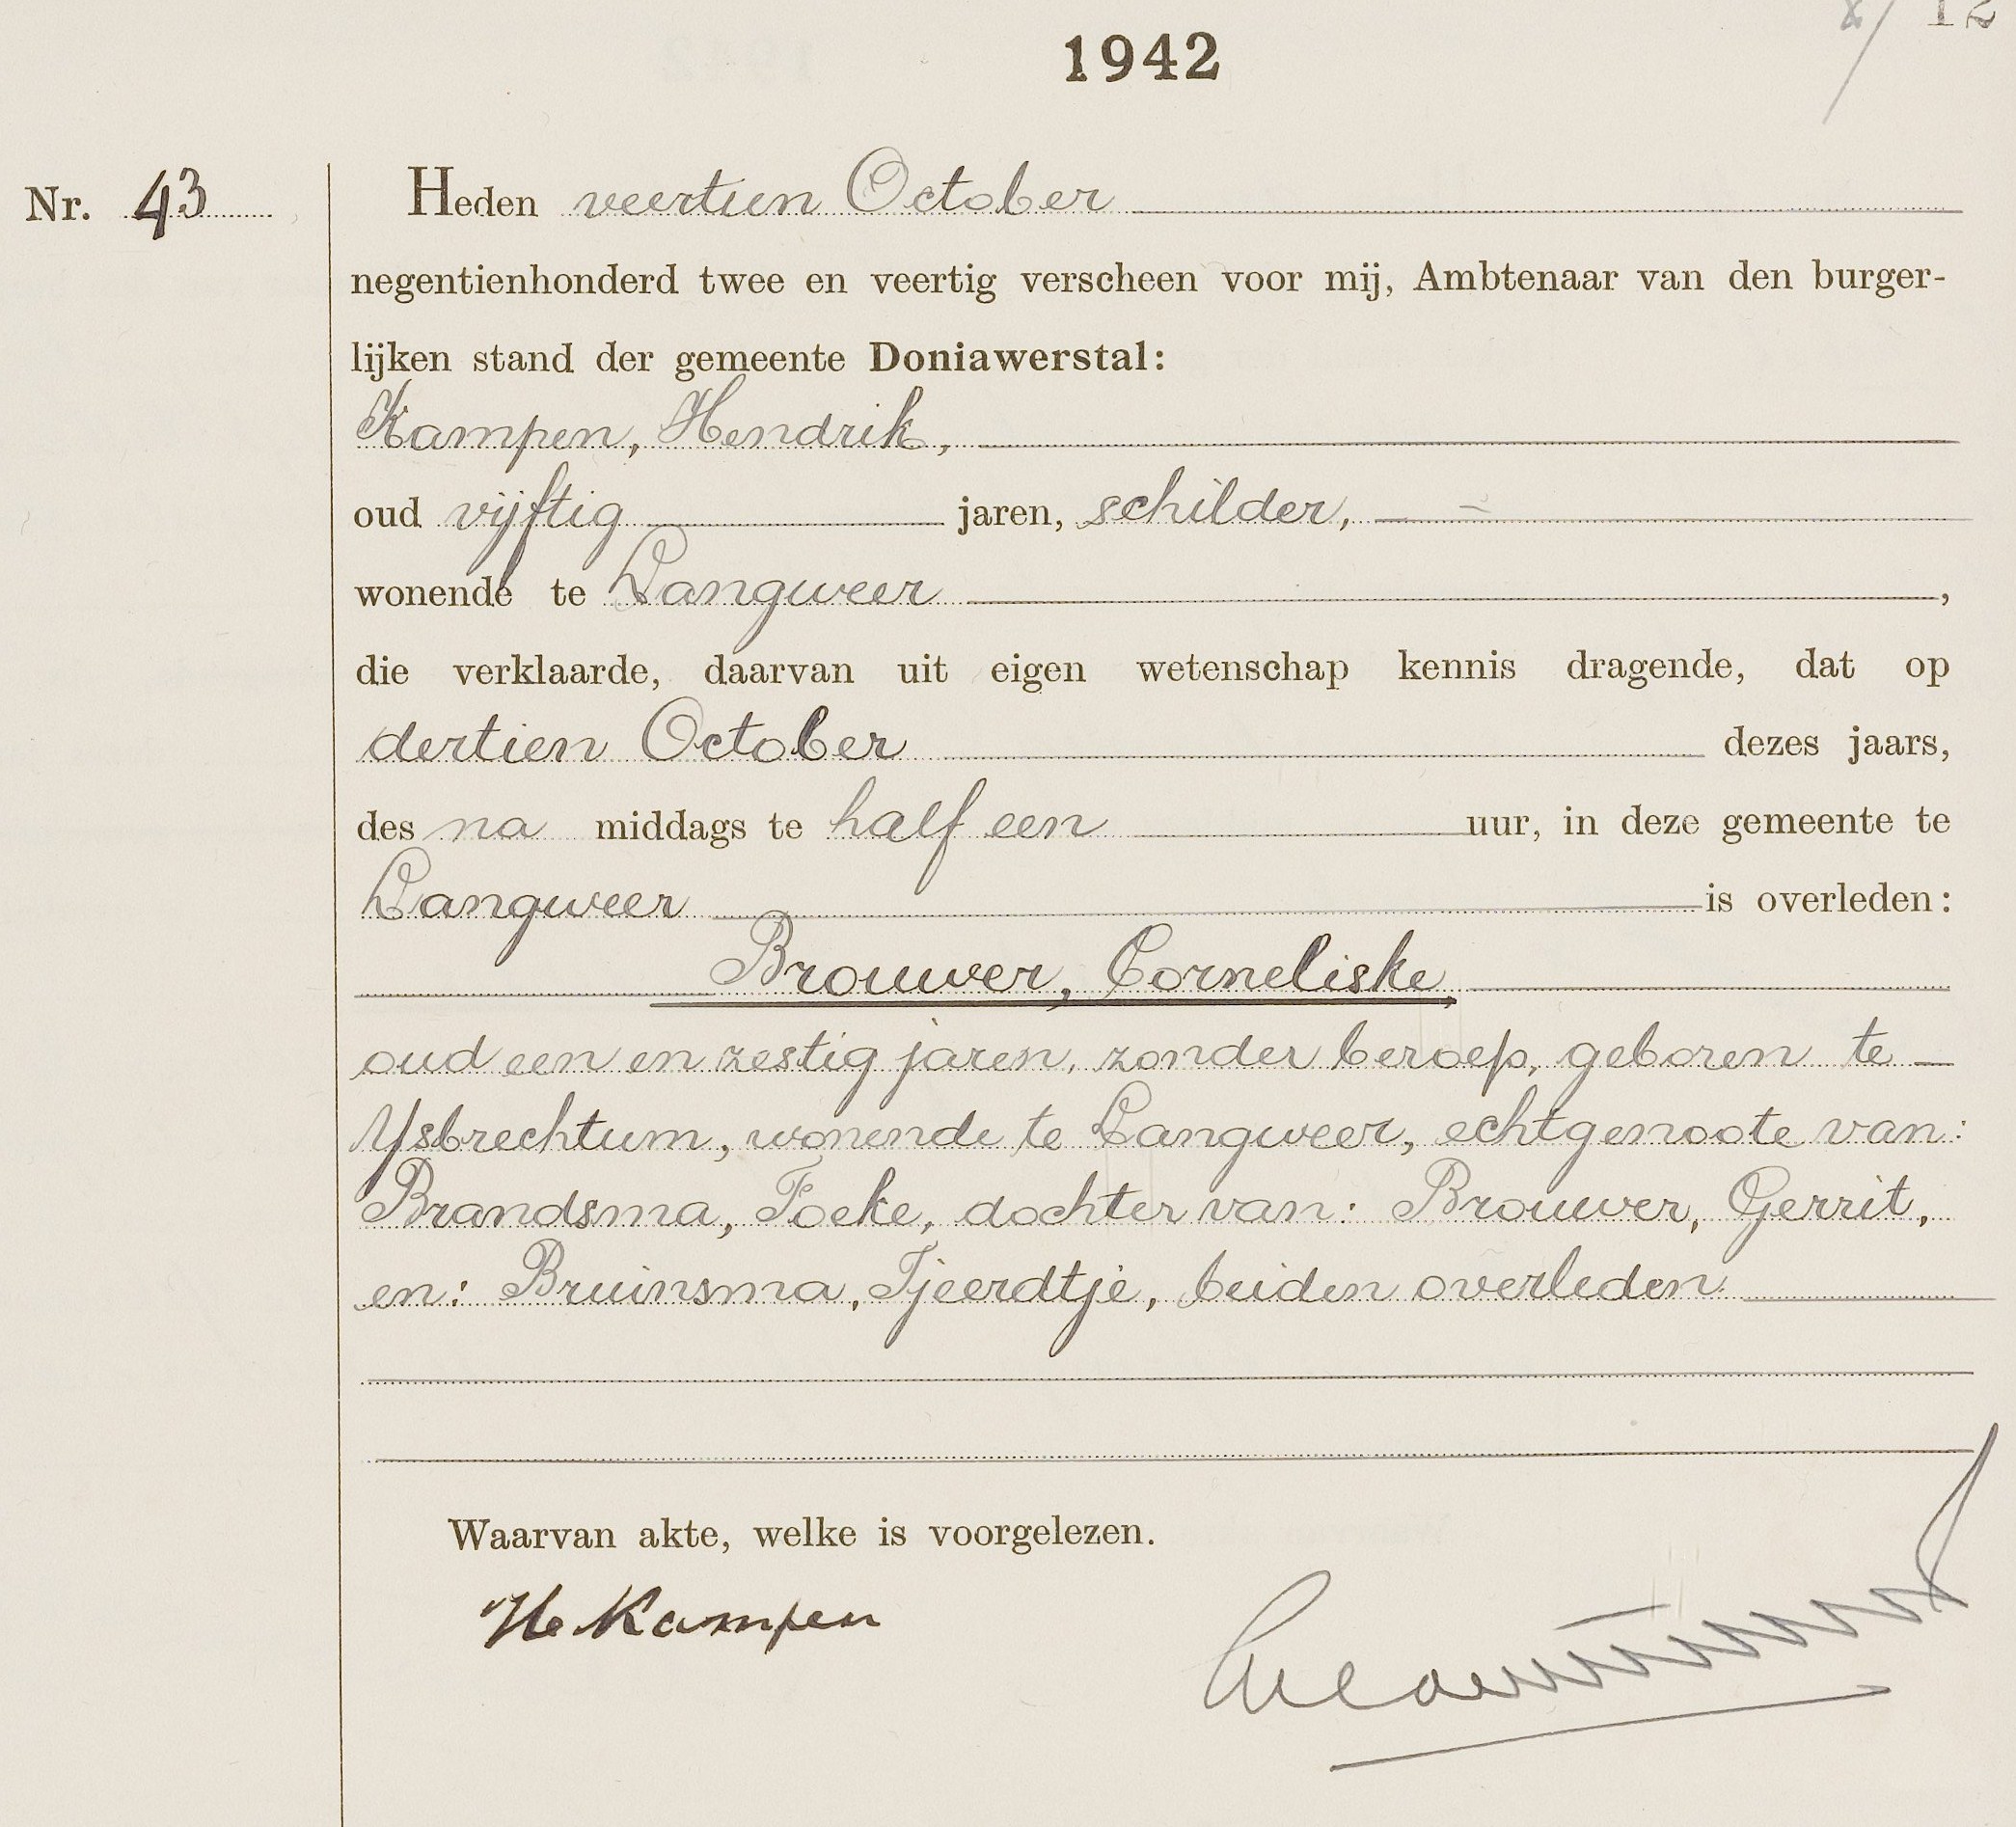 12
1942
Nr. 43
Heden veertien October
negentienhonderd twee en veertig verscheen voor mij, Ambtenaar van den burger-
lijken stand der gemeente Doniawerstal:
Kampen, Hendrik,
oud vijftig jaren, schilder,
wonende te Langweer,
die verklaarde, daarvan uit eigen wetenschap kennis dragende, dat op
dertien October dezes jaars,
des na middags te half een uur, in deze gemeente te
Langweer is overleden:
Brouwer, Corneliske,
oud een en zestig jaren, zonder beroep, geboren te
Ysbrechtum, wonende te Langweer, echtgenoote van:
Brandsma, Foeke, dochter van: Brouwer, Gerrit,
en: Bruinsma, Tjeerdtje, beiden overleden.
Waarvan akte, welke is voorgelezen.
H Kampen